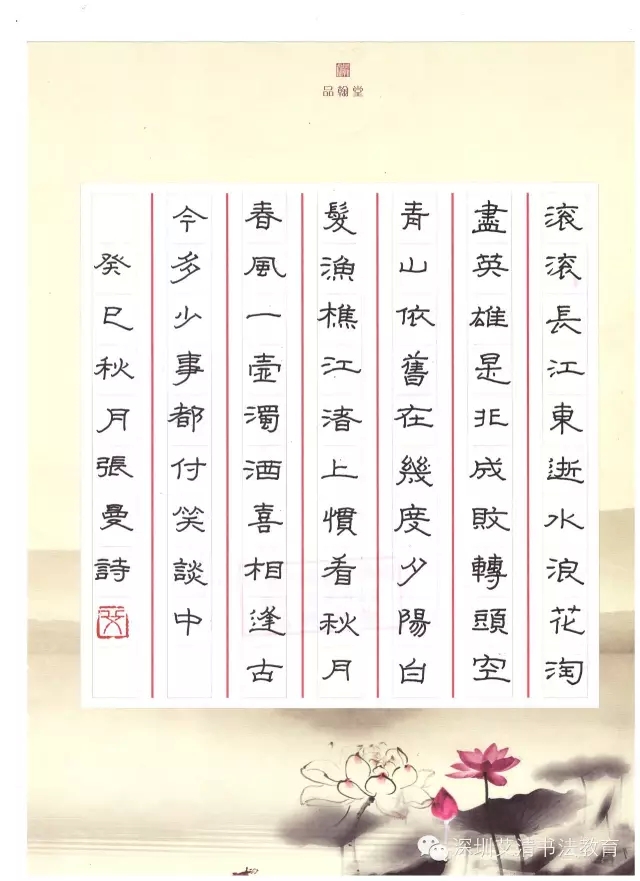 品翰堂
滚滚長江東逝水浪花淘
盡英雄是非成敗轉頭空
青山依舊在幾度夕陽白
髮漁樵江渚上慣看秋月
春風一壺濁酒喜相逢古
今多少事都付笑談中
癸巳秋月張曼詩
深圳艾清书法教育